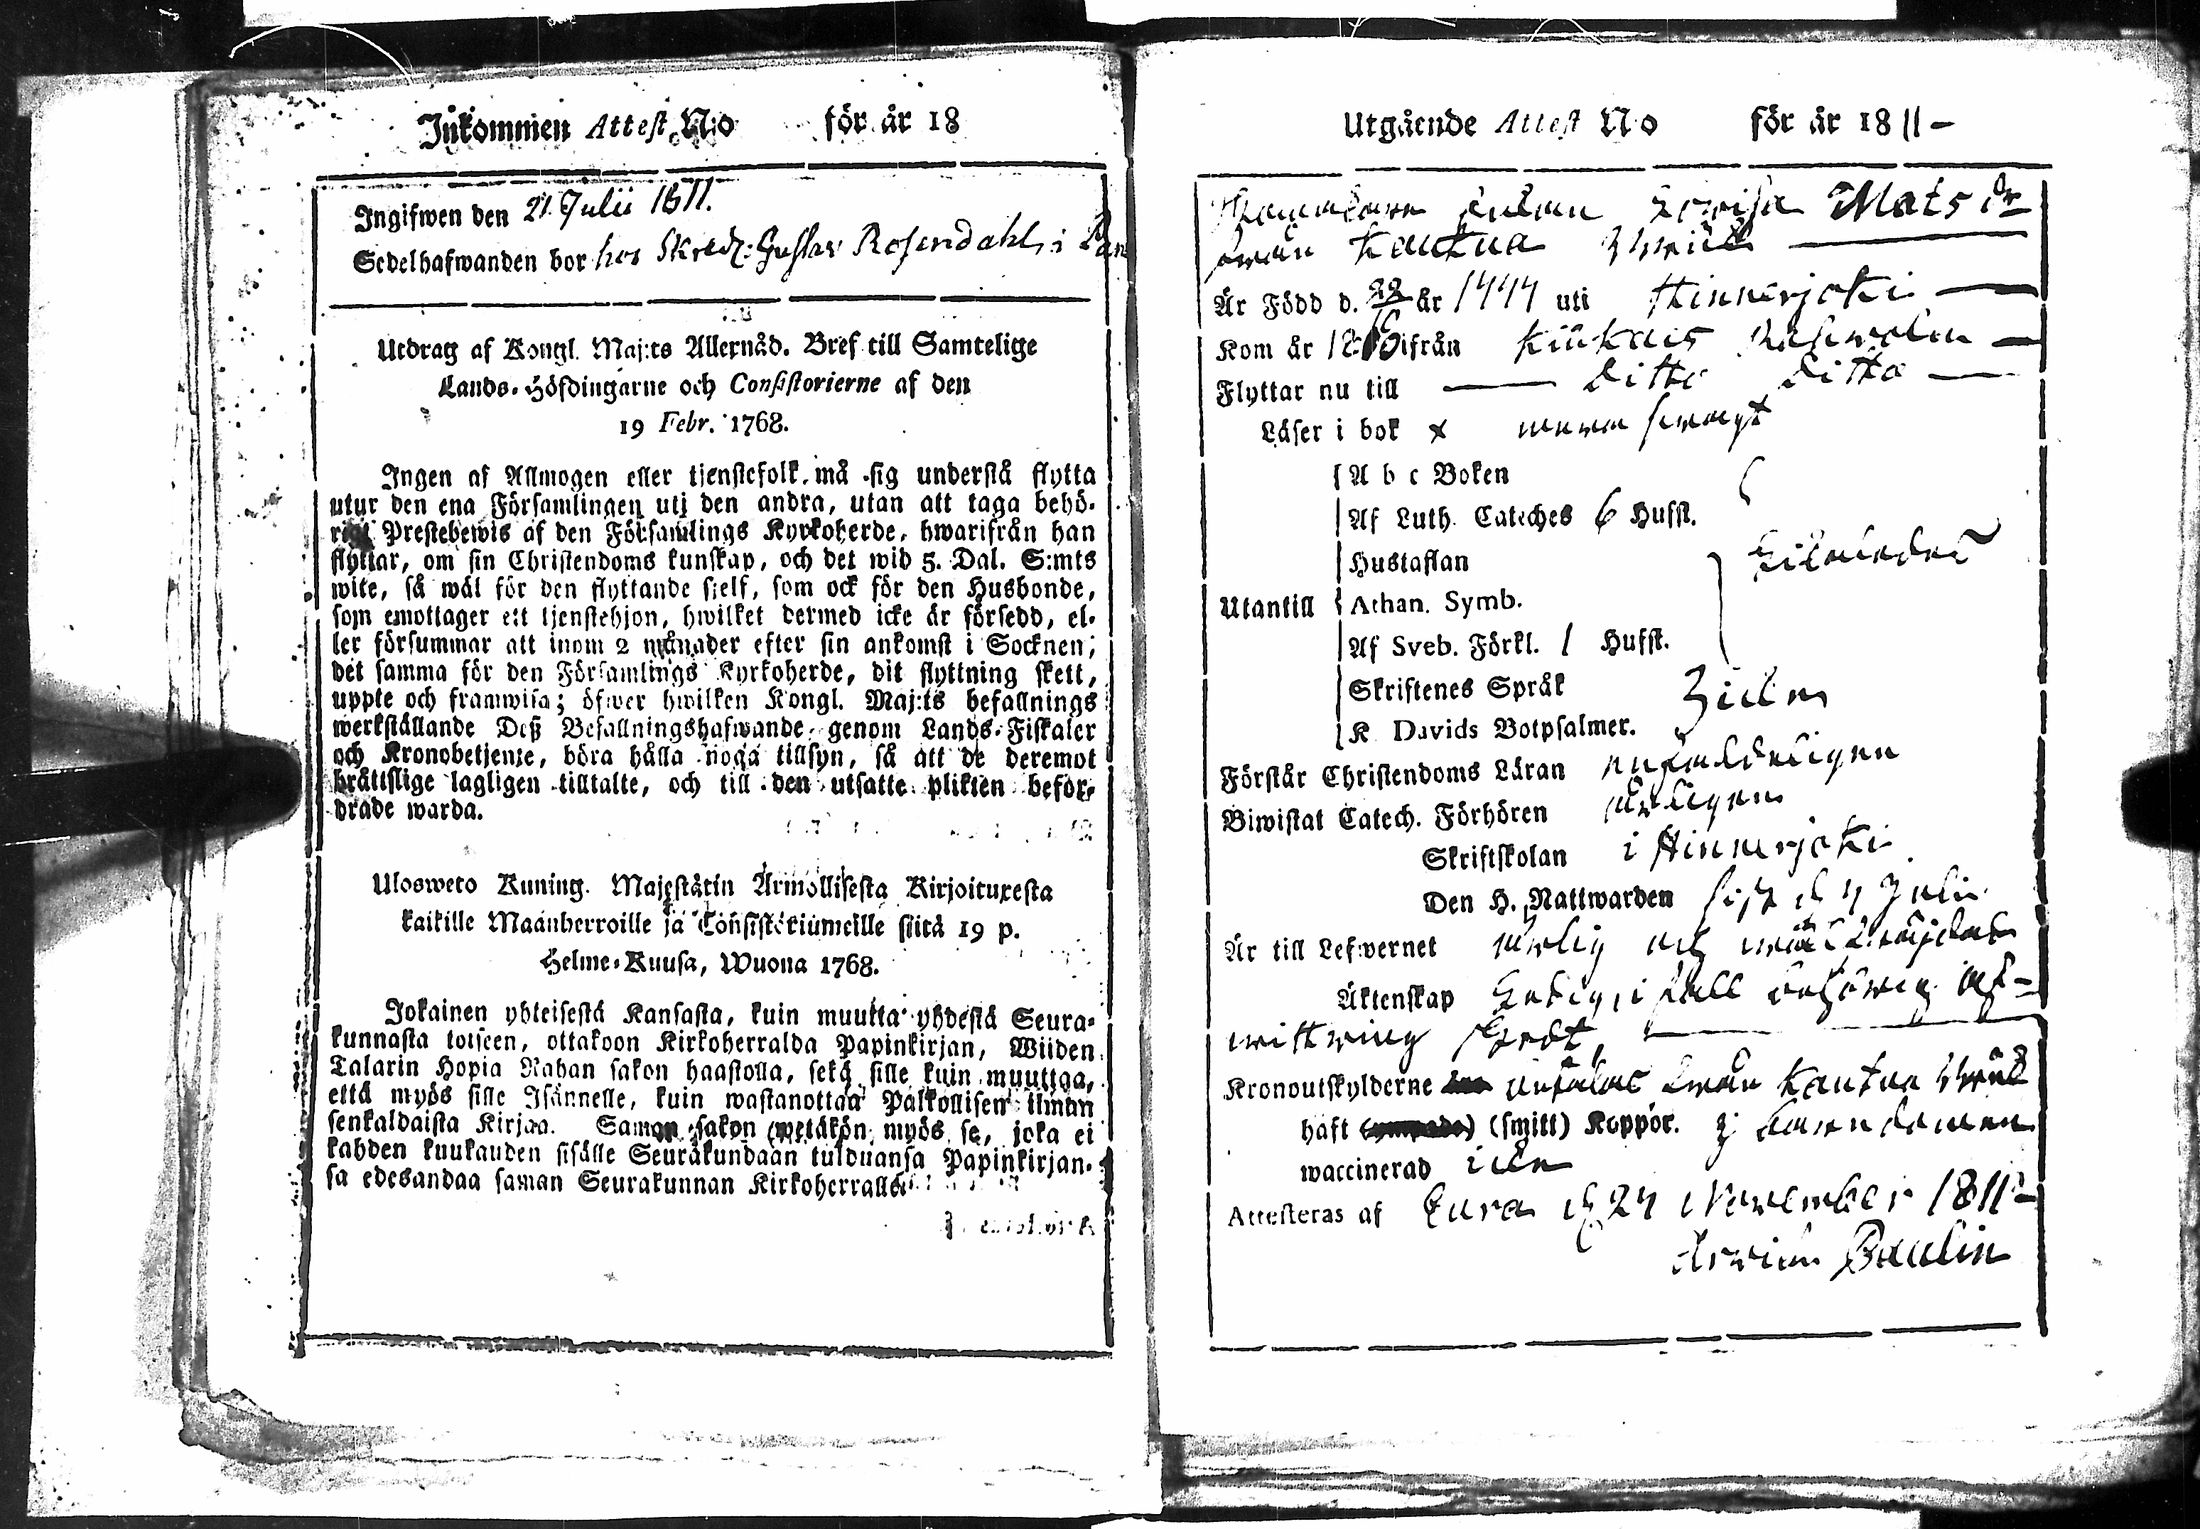 Inkommen Attest N:o för år 18
Ingifwen den 21 Julii 1811.
Sedelhafwanden bor hos Skredd: Gustav Rosendahl, i
Utdrag af Kongl. Maj:ts Allernåd. Bref till Samtelige
Lands-Höfdingarne och Consistorierne af den
19 Febr. 1768.
Ingen af Allmogen eller tjenstefolk må sig understå flytta
utur den ena Församlingen uti den andra, utan att taga behö-
rigt Prestebewis af den Församlings Kyrkoherde, hwarifrån han
flyttar, om sin Christendoms kunskap, och det wid 5. Dal. S:mts
wite, så wäl för den flyttande sjelf, som ock för den Husbonde,
som emottager ett tjenstehjon, hwilket dermed icke är försedd, el-
ler försummar att inom 2 månader efter sin ankomst i Socknen,
det samma för den Församlings Kyrkoherde, dit flyttning skett,
uppte och framwisa; öfwer hwilken Kongl. Maj:ts befallnings
werkställande Deß Befallningshafwande genom Lands-Fiskaler
och Kronobetjente, böra hålla noga tillsyn, så att de deremot
bråttslige lagligen tilltalte, och till den utsatte plikten befor-
drade warda.
Ulosweto Kuning. Majestätin Armollisesta Kirjoituxesta
kaikille Maanherroille ja Consistoriumeille siitä 19 p.
Helme-Kuusa, Wuona 1768.
Jokainen yhteisestä Kansasta, kuin muutta yhdestä Seura-
kunnasta toiseen, ottakoon Kirkoherralda Papinkirjan, Wiiden
Talarin Hopia Rahan sakon haastolla, sekä sille kuin muuttaa,
että myös sille Isännelle, kuin wastanottaa Palkollisen ilman
senkaldaista Kirjaa. Saman sakon wetäkön myös se, joka ei
kahden kuukauden sisälle Seurakundaan tulduansa Papinkirjan-
sa edesandaa saman Seurakunnan Kirkoherralle.
Utgående Attest N:o för år 1811-
Enkan Lovisa Mats dr
från Kautua Bruk
Är Född d. 22 år 1777 uti Hinnerjoki
Kom år 18 ifrån Kiukais
Flyttar nu till ditto ditto
Läser i bok x swagt
A b c Boken
Af Luth. Cateches 6 Hufst.
Hustaflan
Utantill Athan. Symb.
Af Sveb. Förkl. 1 Hufst.
Skriftenes Språk
K. Davids Botpsalmer.
Förstår Christendoms Läran enfaldeligen
Biwistat Catech. Förhören årligen
Skriftskolan i Hinnerjoki
Den H. Nattwarden sist d 7 Julii
Är till Lefwernet ärlig och
Äktenskap Ledig, i fall behörig af-
wittring skedt
Kronoutskylderne från Kautua Bruk
haft (smitt) Koppor. i barndomen
waccinerad icke
Attesteras af Eura d 24 November 1811
Arwidh Paulin